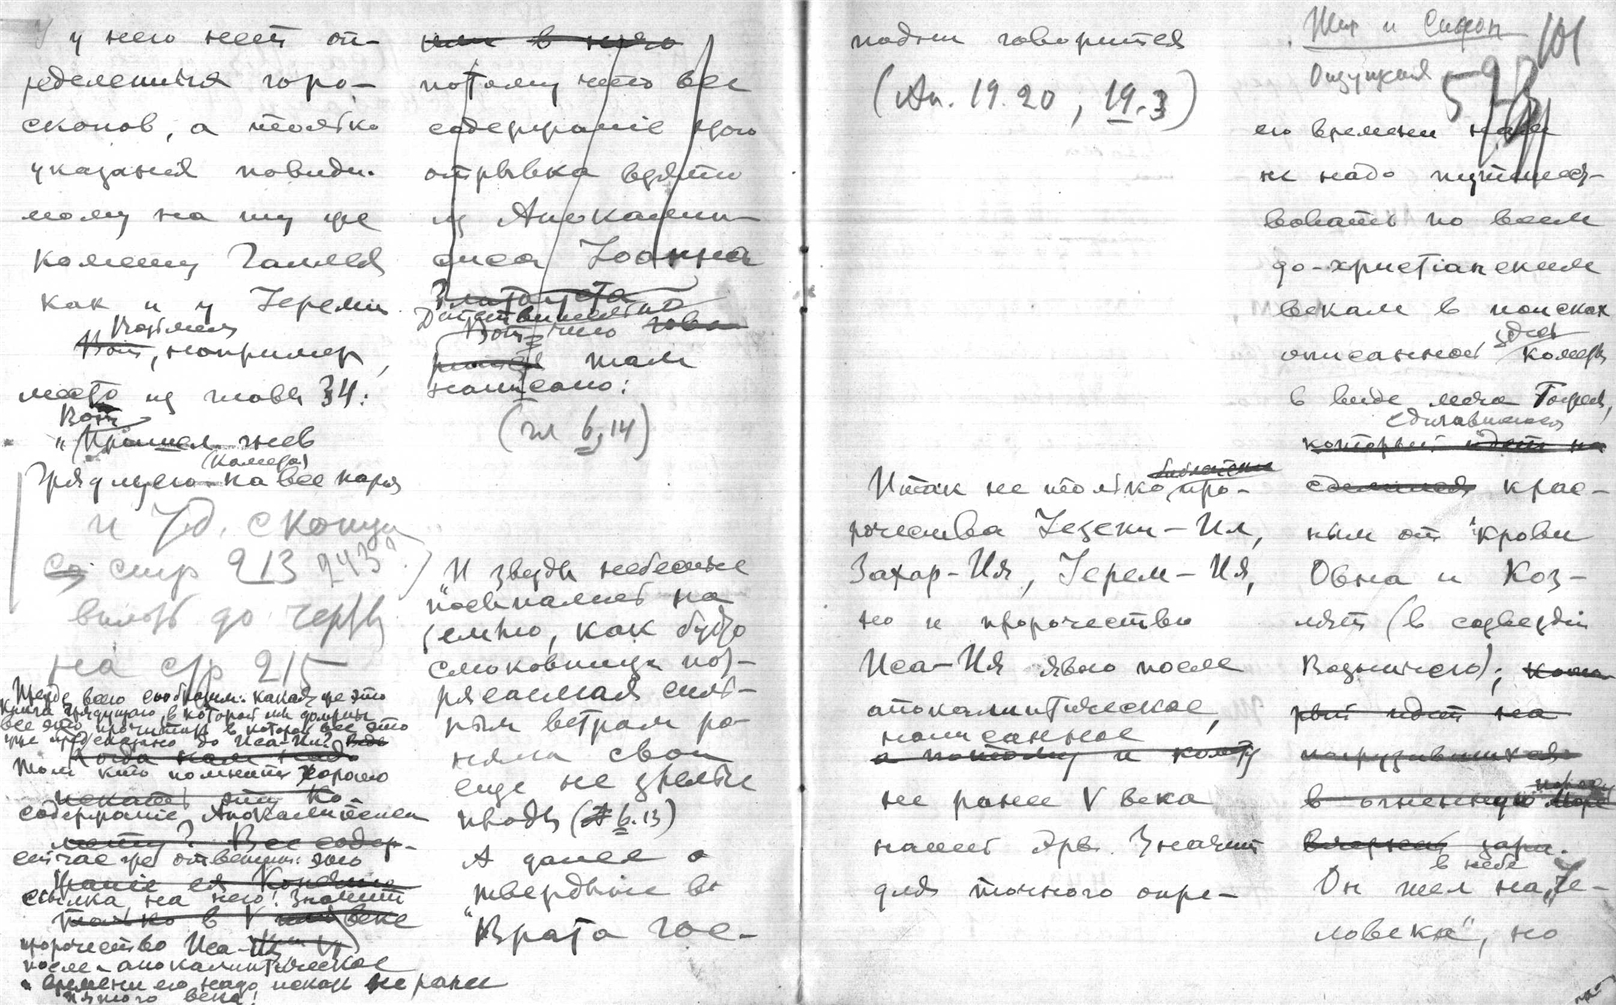 у него нет оп-
ределения горо-
скопов, а только
указания повиди-
мому на ту же
комету Галлея
как и у Иереми
Возьмем
Вот, например,
место из главы 34:
Вот
"Пришел гнев
(Комета)
Грядущего на все наро
и т.д. с конца
со стр 213 243°?
вплоть до черты
на стр 215
Прежде всего сообразим: какая же это
книга Грядущего, в которой мы должны
все это прочитать, в которой все это
уже предсказано до Иса-Ии?
Когда нам надо
Тот кто помнит хорошо
искать эту ко
содержание Апокалипсиса
мету? Все содер-
сейчас же ответит: это
жание ея
ссылка на него! Значит
только в V веке
пророчество Иса-Ии
после-апокалиптическое
и времени его надо искать не ранее
пятого века!
или в него
потому что все
содержание этого
отрывка взято
из Апокалип-
сиса Иоанна
Златоуста
Действительно
Вот что гово
рится там
написано:
(гл 6,14)
"И звезды небесные
посыпались на
землю, как будто
смоковница пот-
рясаемая силь-
ным ветром ро-
няла свои
еще не зрелые
плоды (А 6.13)
А далее о
твердыне в
"Врата гос-
подни говорится
(Ап. 19.20, 19.3)
Итак не только библейские про-
рочества Иезеки-Ил,
Захар-Ия, Иерем-Ия,
но и пророчество
Иса-Ия явно после
апокалиптическое,
написанное
а потому и комету
не ранее V века
нашей эры. Значит
для точного опре-
101
593
его времени нам
не надо путешест-
вовать по всем
до-христианским
векам в поисках
здесь
описанной кометы
в виде меча Господа,
сделавшегося
который идет на
сделался крас-
ным от "крови
Овна и Коз-
лят (в созвездии
Возничего);
рый идет на
погрузившихся
в огненную море
зари.
в небе
Он шел на "Че-
ловека", но